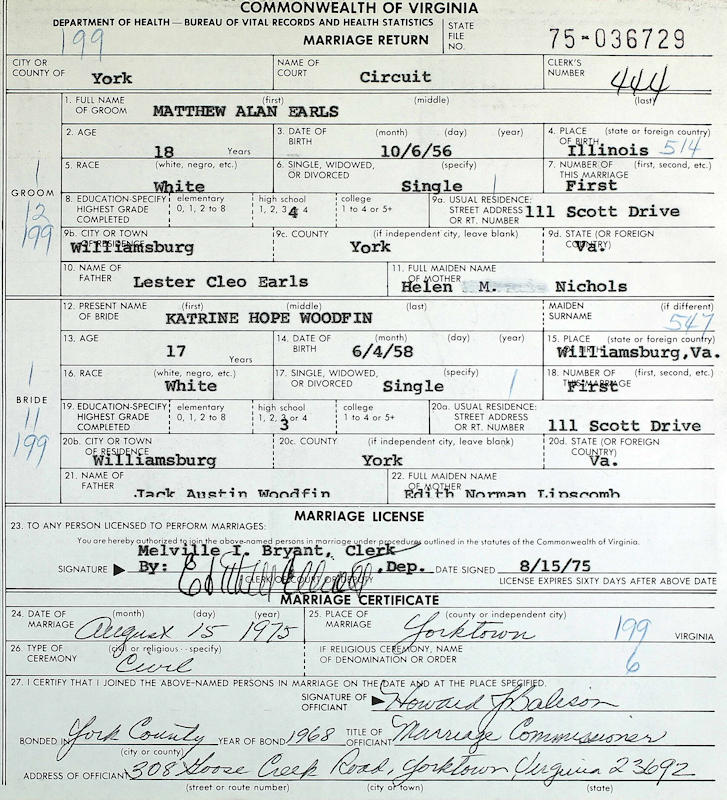 COMMONWEALTH OF VIRGINIA
DEPARTMENT OF HEALTH — BUREAU OF VITAL RECORDS AND HEALTH STATISTICS
199
MARRIAGE RETURN
STATE FILE NO. 75-036729
CITY OR COUNTY OF York
NAME OF COURT Circuit
CLERK'S NUMBER 444
GROOM
1
12
199
1. FULL NAME OF GROOM (first) (middle) (last) MATTHEW ALAN EARLS
2. AGE 18 Years
3. DATE OF BIRTH (month) (day) (year) 10/6/56
4. PLACE OF BIRTH (state or foreign country) Illinois 514
5. RACE (white, negro, etc.) White
6. SINGLE, WIDOWED, OR DIVORCED (specify) Single 1
7. NUMBER OF THIS MARRIAGE (first, second, etc.) First
8. EDUCATION-SPECIFY HIGHEST GRADE COMPLETED elementary 0, 1, 2 to 8 high school 1, 2, 3 4 4 college 1 to 4 or 5+
9a. USUAL RESIDENCE: STREET ADDRESS OR RT. NUMBER 111 Scott Drive
9b. CITY OR TOWN OF RESIDENCE Williamsburg
9c. COUNTY (if independent city, leave blank) York
9d. STATE (OR FOREIGN COUNTRY) Va.
10. NAME OF FATHER Lester Cleo Earls
11. FULL MAIDEN NAME OF MOTHER Helen M. Nichols
BRIDE
1
11
199
12. PRESENT NAME OF BRIDE (first) (middle) (last) KATRINE HOPE WOODFIN
MAIDEN SURNAME (if different) 547
13. AGE 17 Years
14. DATE OF BIRTH (month) (day) (year) 6/4/58
15. PLACE OF BIRTH (state or foreign country) Williamsburg,Va.
16. RACE (white, negro, etc.) White
17. SINGLE, WIDOWED, OR DIVORCED (specify) Single 1
18. NUMBER OF THIS MARRIAGE (first, second, etc.) First
19. EDUCATION-SPECIFY HIGHEST GRADE COMPLETED elementary 0, 1, 2 to 8 high school 1, 2, 3 or 4 3 college 1 to 4 or 5+
20a. USUAL RESIDENCE: STREET ADDRESS OR RT. NUMBER 111 Scott Drive
20b. CITY OR TOWN OF RESIDENCE Williamsburg
20c. COUNTY (if independent city, leave blank) York
20d. STATE (OR FOREIGN COUNTRY) Va.
21. NAME OF FATHER Jack Austin Woodfin
22. FULL MAIDEN NAME OF MOTHER Edith Norman Lipscomb
MARRIAGE LICENSE
23. TO ANY PERSON LICENSED TO PERFORM MARRIAGES:
You are hereby authorized to join the above-named persons in marriage under procedures outlined in the statutes of the Commonwealth of Virginia.
Melville I. Bryant, Clerk
SIGNATURE By: , Dep. DATE SIGNED 8/15/75
CLERK OF COURT OR DEPUTY
LICENSE EXPIRES SIXTY DAYS AFTER ABOVE DATE
MARRIAGE CERTIFICATE
24. DATE OF MARRIAGE (month) (day) (year) August 15 1975
25. PLACE OF MARRIAGE (county or independent city) Yorktown 199 VIRGINIA
26. TYPE OF CEREMONY (civil or religious - specify) Civil
IF RELIGIOUS CEREMONY, NAME OF DENOMINATION OR ORDER 6
27. I CERTIFY THAT I JOINED THE ABOVE-NAMED PERSONS IN MARRIAGE ON THE DATE AND AT THE PLACE SPECIFIED.
SIGNATURE OF OFFICIANT Howard J Balison
BONDED IN York County YEAR OF BOND 1968 TITLE OF OFFICIANT Marriage Commissioner
(city or county)
ADDRESS OF OFFICIANT 308 Goose Creek Road, Yorktown, Virginia 23692
(street or route number) (city or town) (state)